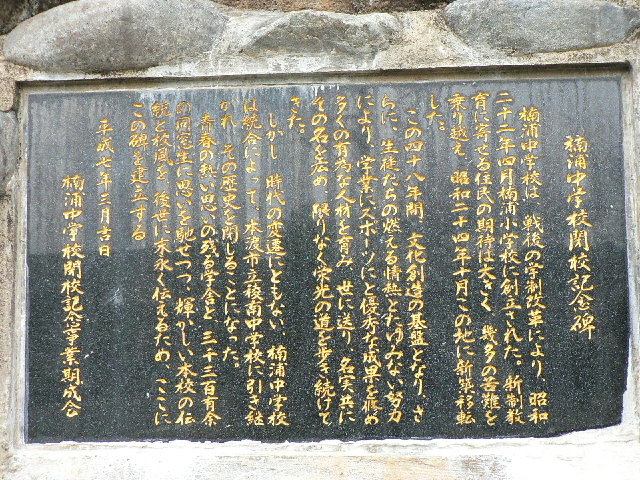 楠浦中学校閉校記念碑
楠浦中学校は、戦後の学制改革により、昭和
二十二年四月楠浦小学校に創立された。新制教
育に寄せる住民の期待は大きく、幾多の苦難を
乗り越え、昭和二十四年十月この地に新築移転
した。
この四十八年間、文化創造の基盤となり、さ
らに、生徒たちの燃える情熱とたゆみない努力
により、学業にスポーツにと優秀な成果を修め
多くの有為な人材を育み、世に送り、名実共に
その名を広め、限りなく栄光の道を歩き続けて
きた。
しかし、時代の変遷にともない、楠浦中学校
は統合によって、本渡市立稜南中学校に引き継
がれ、その歴史を閉じることになった。
青春の熱い思いの残る学舎と、三千三百有余
の同窓生に思いを馳せつつ、輝かしい本校の伝
統と校風を、後世に末永く伝えるため、ここに
この碑を建立する。
平成七年三月吉日
楠浦中学校閉校記念事業期成会